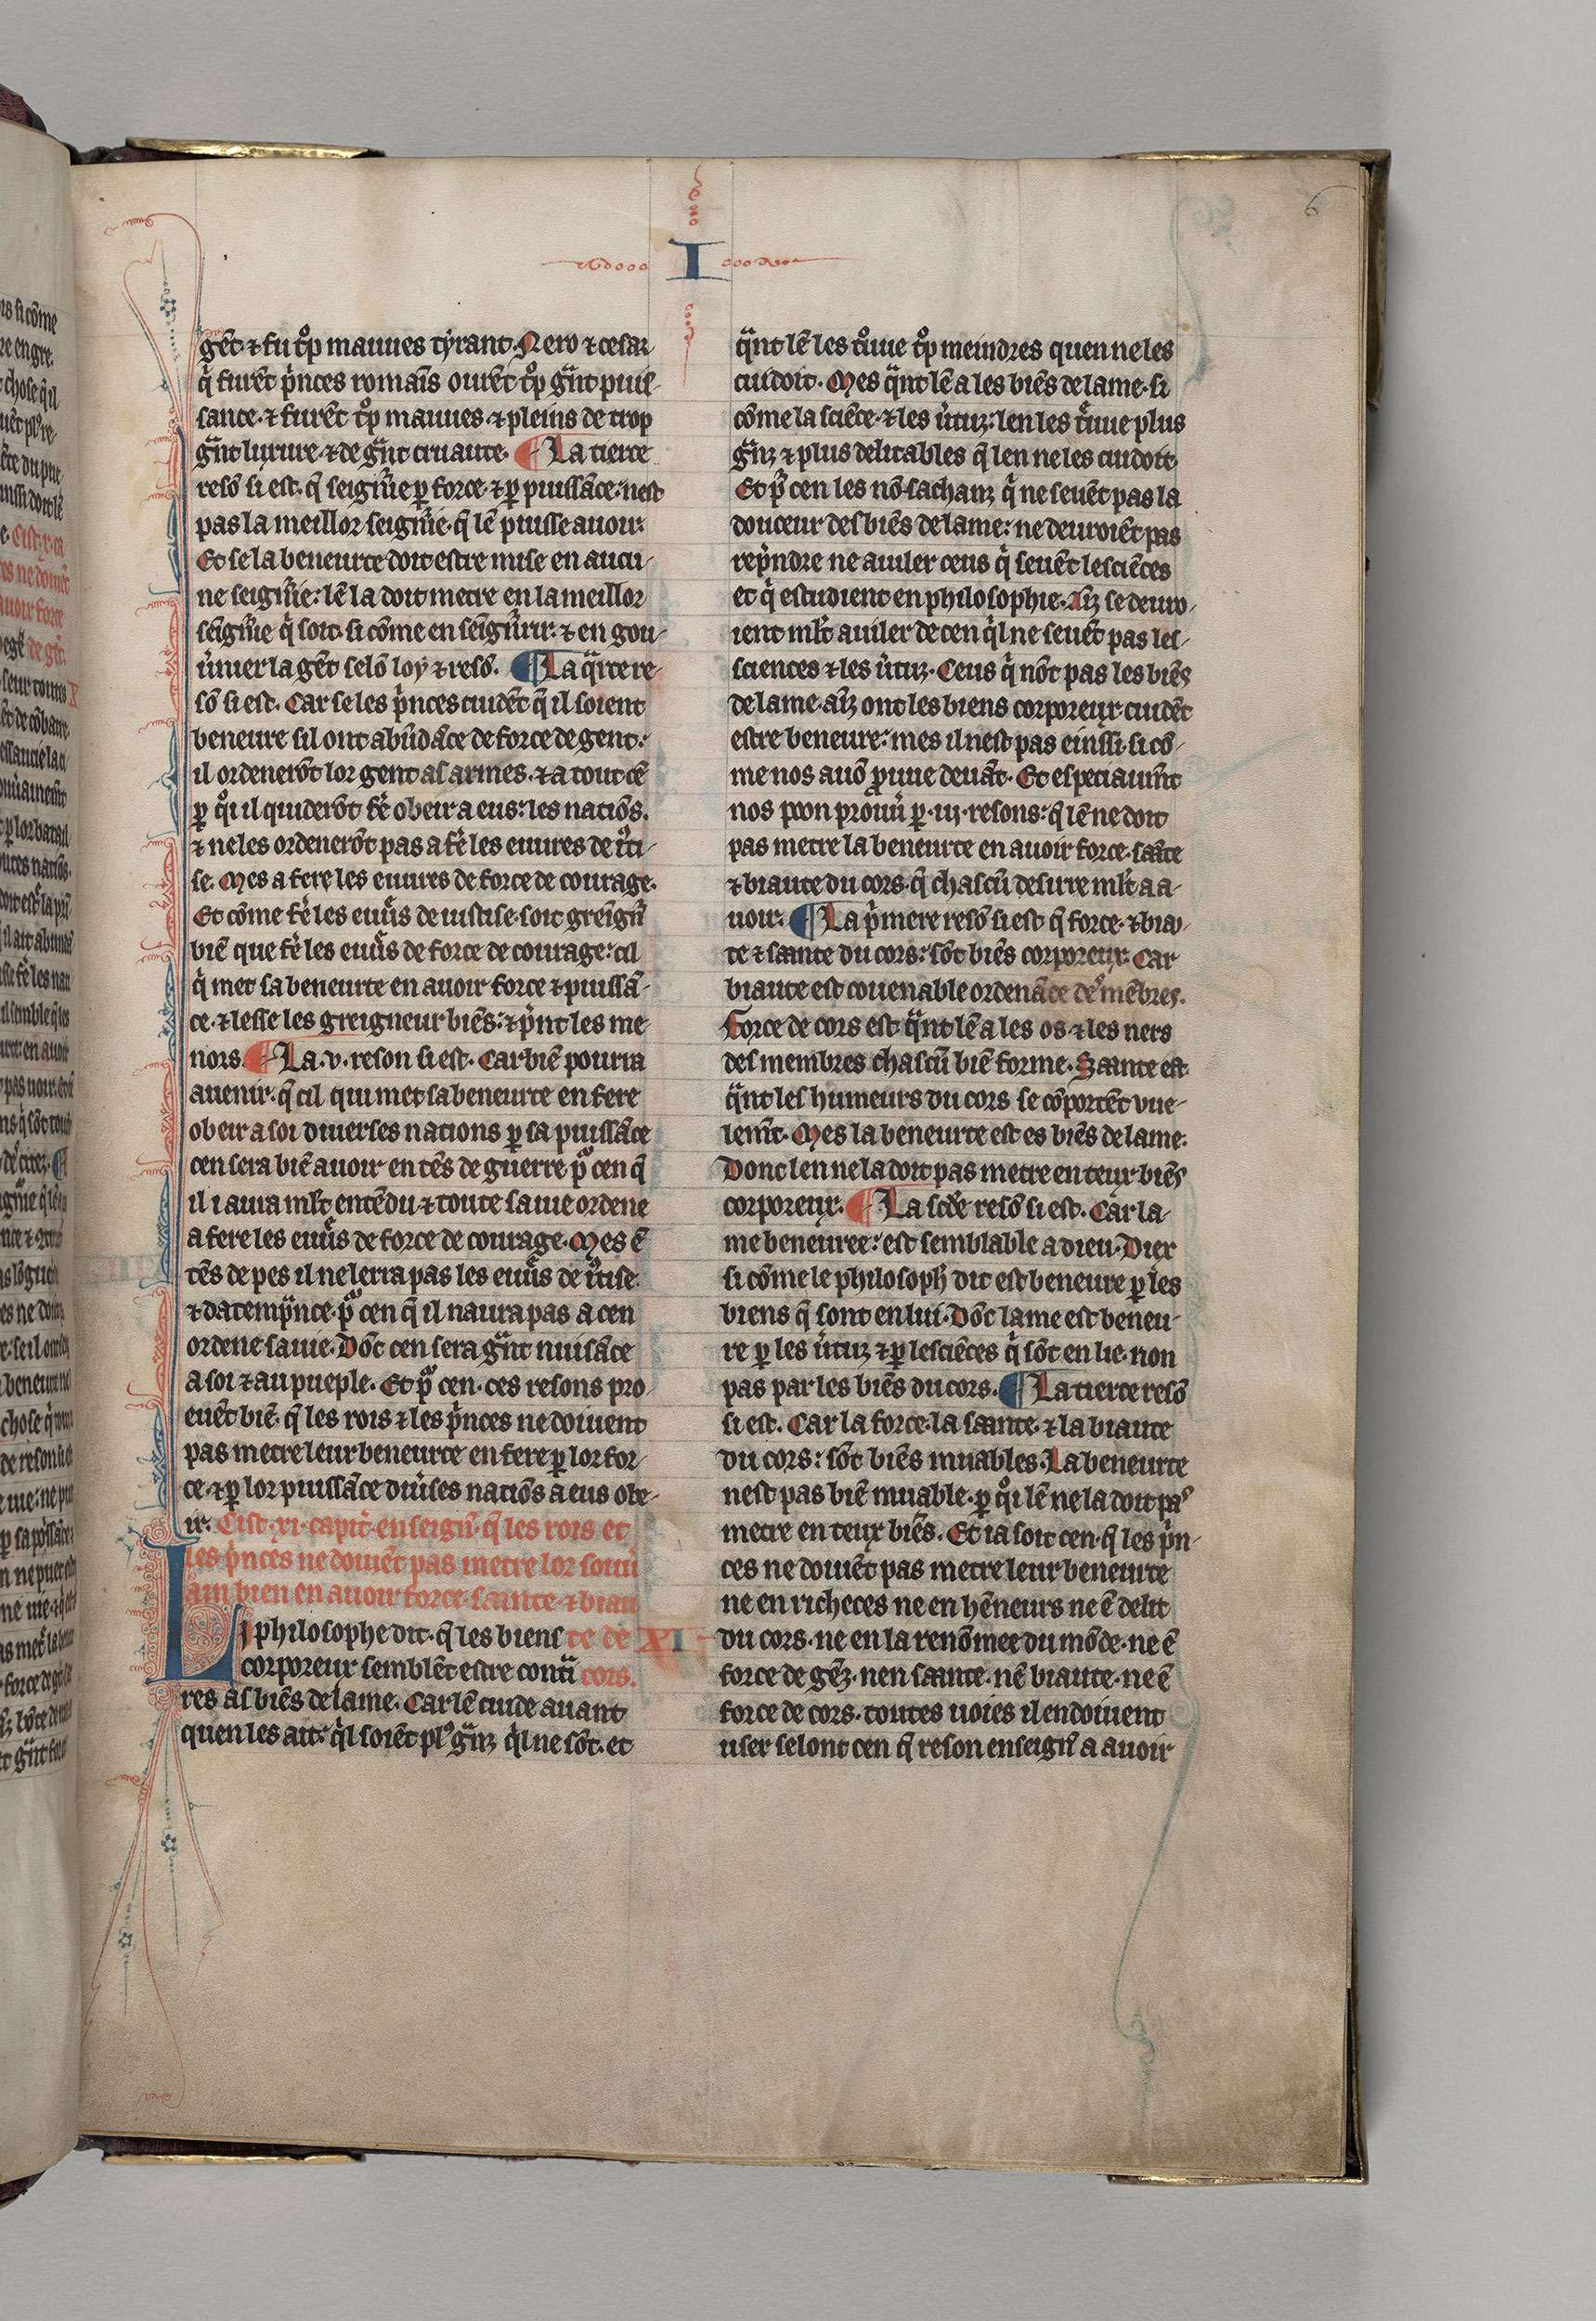 I
6
gēt ⁊ fu tͦp mauues tyrant. Nero ⁊ cesar
q̇ furēt p̍nces romaīs ourēt tͦp gᵃ̄nt puis-
sance. ⁊ furēt tͦp mauues ⁊ pleins de trop
gᵃ̄nt luxure ⁊ de gᵃ̄nt cruaute. ¶ La tierce
resō si est. q̄ seignīe ꝑ force. ⁊ ꝑ puissāce: nest
pas la meillor seignīe. q̄ lē puisse auoir.
Et se la beneurte doit estre mise en aucu-
ne seignīe: lē la doit metre en la meillor
seignīe q̇ soit. si cōme en seign̄rir. ⁊ en gou-
u̍ner la gēt selō loy ⁊ resō. ¶ La qᵃrte re-
sō si est. Car se les p̍nces cuidēt q̄ il soient
beneure sil ont abūdāce de force de gent:
il ordenerōt lor gent as armes. ⁊ a tout cē
ꝑ qͦi il quiderōt fe̍ obeir a eus: les natiōs.
⁊ ne les ordenerōt pas a fe̍ les euures de iͧsti-
se. Mes a fere les euures de force de courage.
Et cōme fe̍ les euͧ̍s de iustise. soit greign̄
biē que fe̍ les euͧ̍s de force de courage: cil
q̇ met sa beneurte en auoir force ⁊ puissā-
ce. ⁊ lesse les greigneur biēs: ⁊ p̍nt les me
nors. ¶ La .v. reson si est. Car biē pourra
auenir. q̄ cil qui met sa beneurte en fere
obeir a soi diuerses nations ꝑ sa puissāce
cen sera biē auoir en tēs de guerre pͦ cen q̄
il i aura ml̄t entēdu ⁊ toute sa uie ordene
a fere les euͧ̍s de force de courage. Mes ē
tēs de pes il ne lerra pas les euͧ̍s de iͧstise.
⁊ datemp̄nce. pͦ cen q̄ il naura pas a cen
ordene sa uie. Dōc cen sera gᵃ̄nt nuisāce
a soi ⁊ au pueple. Et pͦ cen. ces resons pro-
euēt biē. q̄ les rois ⁊ les p̍nces ne doiuent
pas metre leur beneurte en fere ꝑ lor for-
ce. ⁊ ꝑ lor puissāce diu̍ses natiōs a eus obe-
ir. Cist .xi. capit̍. enseign̄. q̄ les rois et
les p̍nces ne doiuēt pas metre lor souu̍
ain bien en auoir force. sante ⁊ biau
LI philosophe dit. q̄ les biens te de XI
corporeux semblēt estre contᵃ cors.
res as biēs de lame. Car lē cuide auant
quen les ait: q̇l soiēt plꝰ gᵃ̄nz q̇l ne sōt. et
qᵃ̄nt lē les tͦuue tͦp meindres quen ne les
cuidoit. Mes qᵃ̄nt lē a les biēs de lame. si
cōme la sciēce. ⁊ les u̍tuz: len les tͦuue plus
gᵃ̄nz ⁊ plus delitables q̄ len ne les cuidoit.
Et pͦ cen les nō sachanz q̇ ne seuēt pas la
douceur des biēs de lame: ne deuroiēt pas
rep̍ndre ne auiler ceus q̇ seuēt les ciēces
et q̇ estudient en philosophie. Aīz se deuro-
ient ml̄t auiler de cen q̇l ne seuēt pas les-
sciences ⁊ les u̍tuz. Ceus q̇ nōt pas les biēs
de lame. aīz ont les biens corporeux cuidēt
estre beneure: mes il nest pas einssi. si cō-
me nos auō ꝓuue deuāt. Et especiaum̄t
nos poon prouu̍ ꝑ .iij. resons: q̄ lē ne doit
pas metre la beneurte en auoir force. sāte
⁊ biaute du cors. q̄ chascū desirre ml̄t a a-
uoir. ¶ La p̍mere resō si est q̄ force. ⁊ biau-
te ⁊ saante du cors: sōt biēs corporeux. Car
biaute est couenable ordenāce de mēbres.
Force de cors est qᵃ̄nt lē a les os ⁊ les ners
des membres chascū biē forme. Saante est
qᵃ̄nt les humeurs du cors se cōportēt vue-
lem̄t. Mes la beneurte est es biēs de lame.
Donc len ne la doit pas metre en teux biēs
corporeux. ¶ La scd̄e resō si est. Car la-
me beneuree: est semblable a dieu. Diex
si cōme le philosoph̄ dit est beneure ꝑ les
biens q̄ sont en lui. Dōc lame est beneu-
re ꝑ les u̍tuz ⁊ ꝑ les ciēces q̇ sōt en lie. non
pas par les biēs du cors. ¶ La tierce resō
si est. Car la force. la saante. ⁊ la biaute
du cors: sōt biēs muables. La beneurte
nest pas biē muable. ꝑ qͦi lē ne la doit paˢ
metre en teux biēs. Et ia soit cen. q̄ les p̍n-
ces ne doiuēt pas metre leur beneurte
ne en richeces ne en hēneurs ne ē delit
du cors. ne en la renōmee du mōde. ne ē
force de gēz. nen saante. nē biaute. ne ē
force de cors. toutes uoies il en doiuent
user selonc cen q̄ reson enseign̄ a auoir